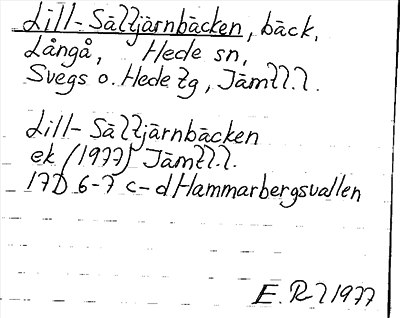 Lill-Sältjärnbäcken, bäck,
Långå, Hede sn,
Svegs o. Hede tg, Jämtl.l.
Lill-Sältjärnbäcken
ek (1977) Jämtl.l.
17D 6-7 c-d Hammarbergsvallen
E. R 1977